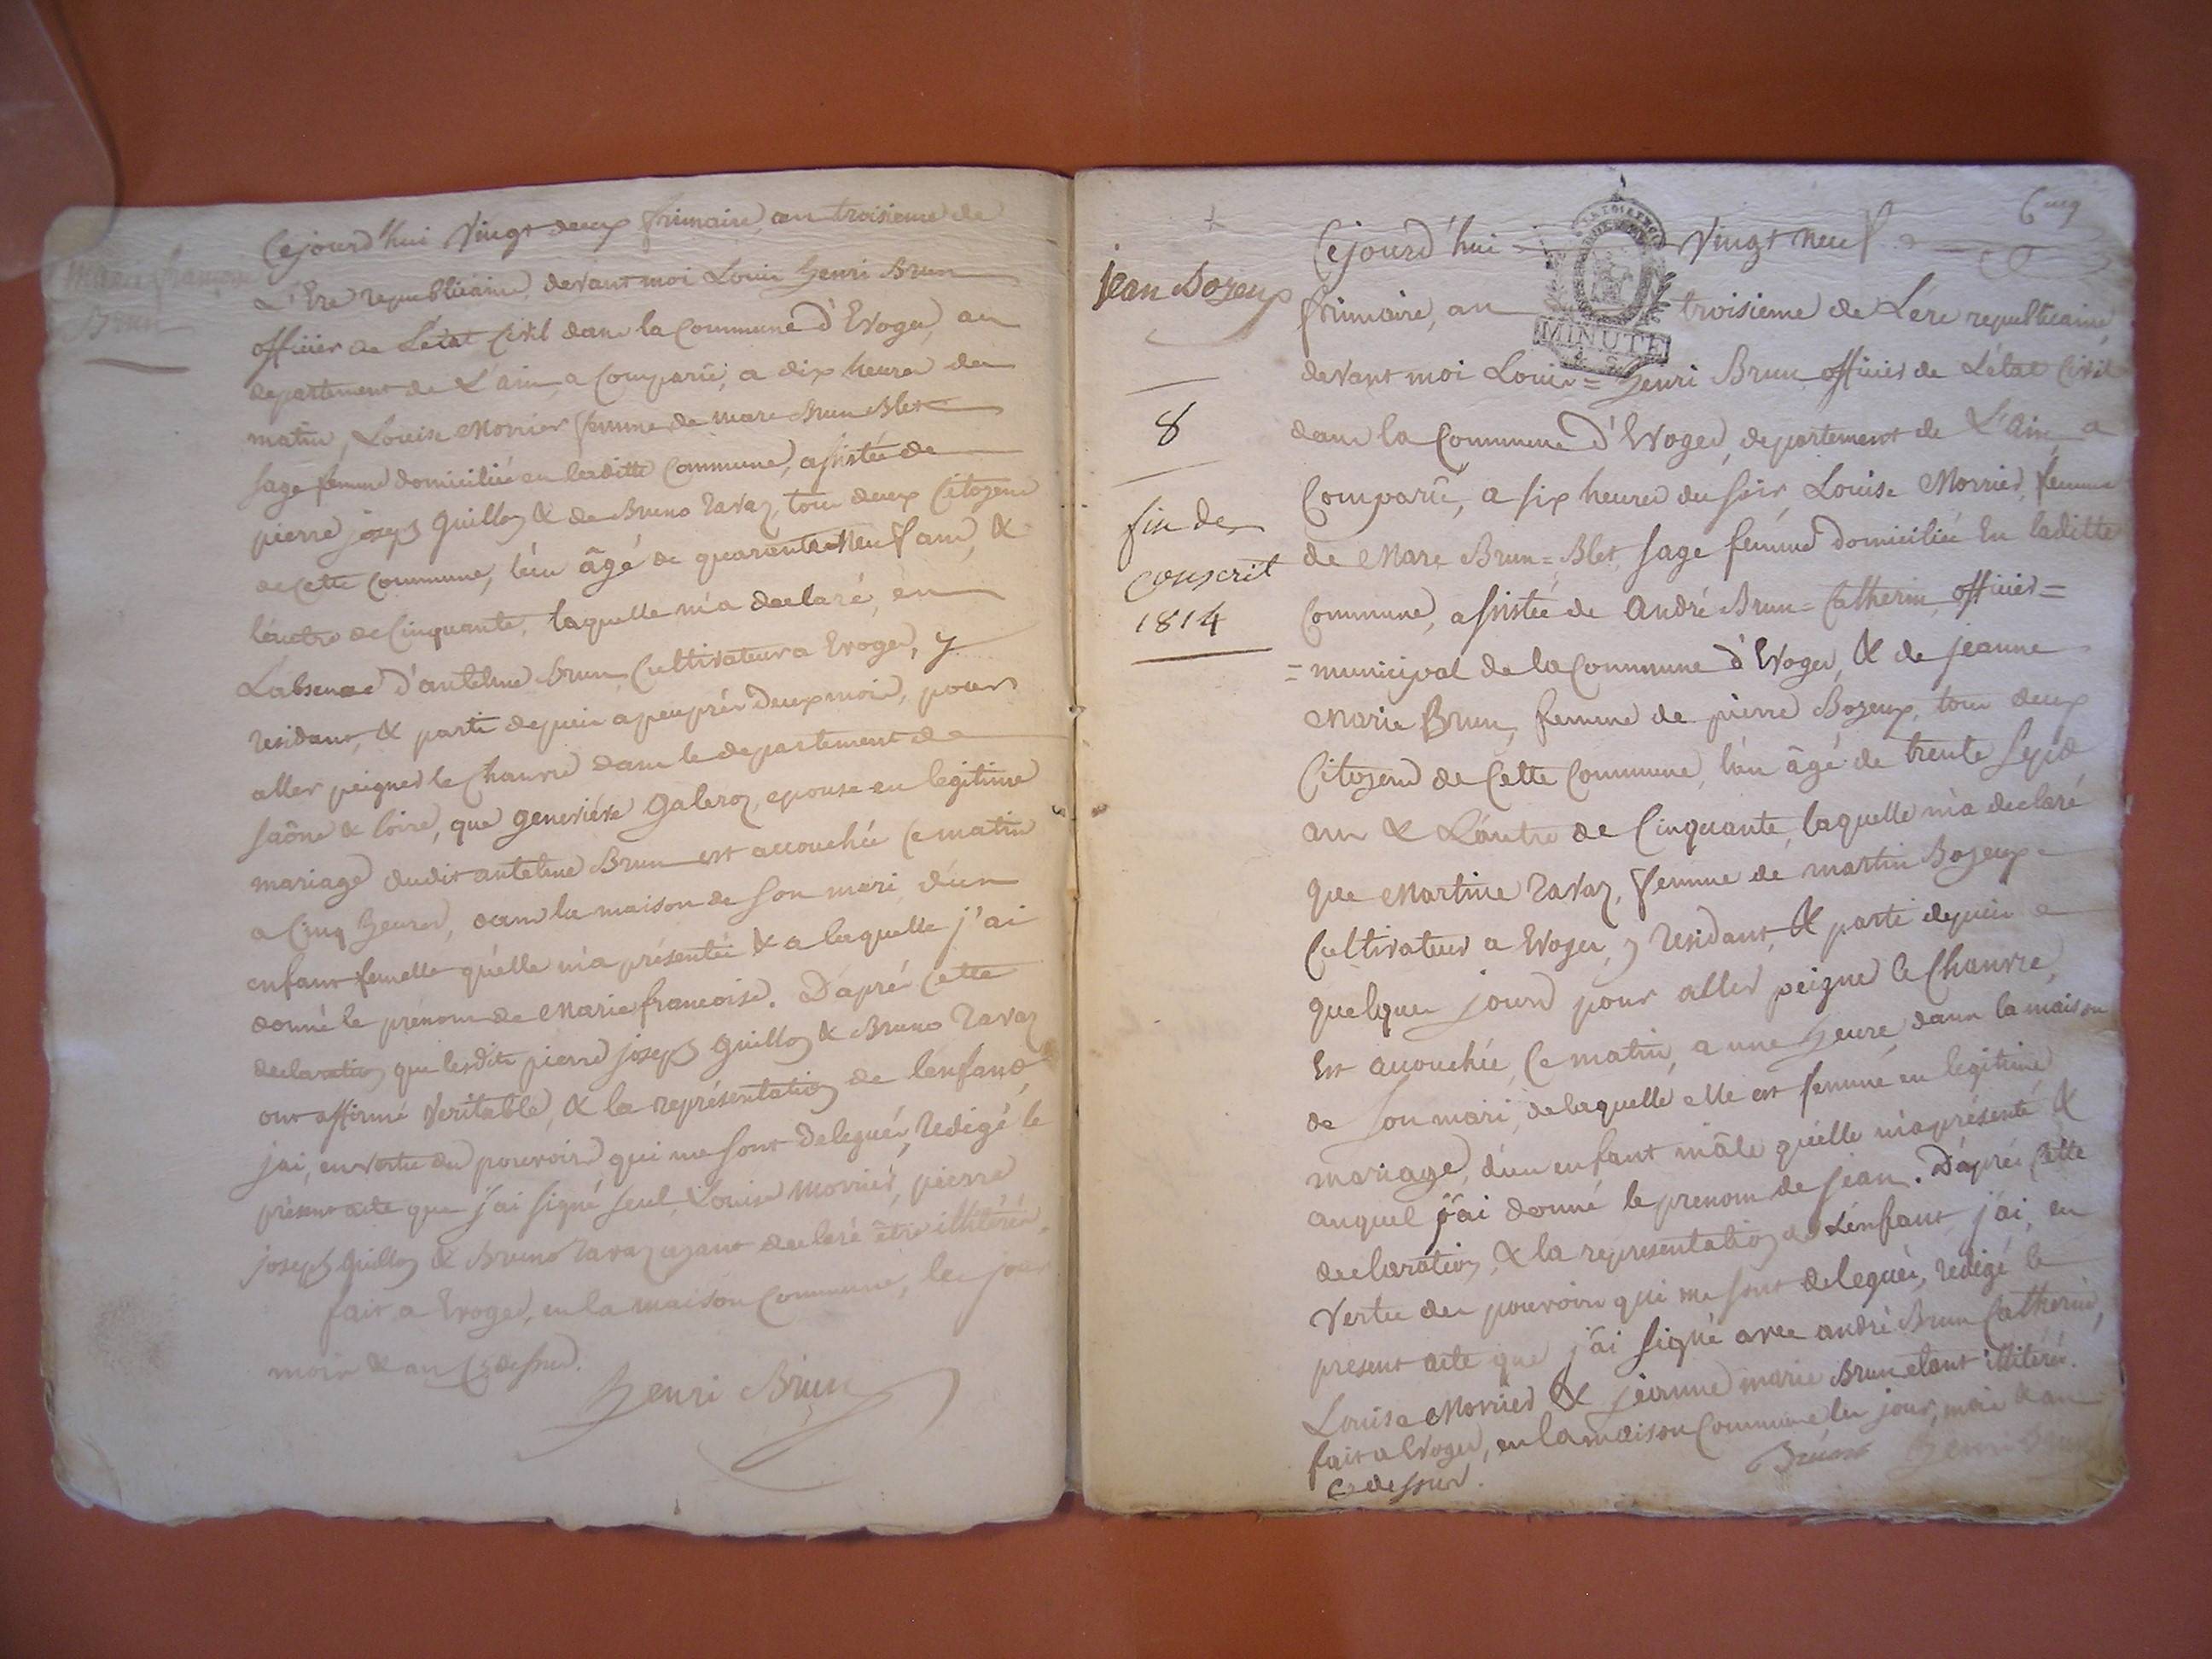 Marie françoise
Brun
Cejourd'hui Vingt deux frimaire, an troisieme de
L'Ere republicaine, devant moi Louis henri Brun
officier de Létat Civil dans la Commune d'Evoges, au
departement de L'ain, a Comparû, a dix heures du
matin, Louise Morrier femme de marc Brun Blet
sage femme domiciliée en laditte Commune, assistée de
pierre joseph Guilloz & de Bruno Ravaz, tous deux Citoyens
de Cette Commune, l'un âgé de quarante Neuf ans, &
l'autre de Cinquante, laquelle m'a declaré, en
L'absence d'antelme Brun Cultivateur a Evoges, y
residant, & parti depuis apeuprés deux mois, pour
aller peigner le Chanvre dans le departement de
saône & loire, que geneviéve Galeroz, epouse en legitime
mariage dudit antelme Brun est accouchée Ce matin
a Cinq heures, dans la maison de son mari, d'un
enfant femelle qu'elle m'a présentée & a laquelle j'ai
donné le prénom de Marie francoise. D'aprés Cette
declaration que lesdits pierre joseph Guilloz & Bruno Ravaz
ont affirmé Veritable, & la représentation de l'enfant,
jai, en vertu des pouvoirs qui me sont delegués, redigé le
présent acte que j'ai signé seul, Louise Morrier, pierre
joseph Guilloz & Bruno Ravaz ayant declaré être illiterés.
fait a Evoges, en la maison Commune, les jour
mois & an Cydessus.
Henri Brun
6
jean Bozeux
8
fin de
conscrit
1814
MINUTE
Cejourd'hui Vingt neuf
frimaire, an troisieme de L'ére republicaine,
devant moi Louis = henri Brun officier de L'état Civil
dans la Commune d'Evoges, departement de L'ain, a
Comparû, a six heures du soir, Louise Morrier, femme
de Marc Brun = Blet, sage femme domiciliée En laditte
Commune, assistée de André Brun = Catherin, officier =
= municipal de la Commune d'Evoges, & de jeanne
Marie Brun, femme de pierre Bozeux, tous deux
Citoyens de Cette Commune, l'un âgé de trente sept
ans & L'autre de Cinquante, laquelle m'a declaré
que Martine Ravaz, femme de martin Bozeux
Cultivateur a Evoges, y residant, & parti depuis
quelques jours pour aller peigner le Chanvre,
Est accouchée, Ce matin, a une heure, dans la maison
de son mari, de laquelle elle est femme en legitime
mariage, d'un enfant mâle qu'elle m'a présenté &
auquel j'ai donné le prenom de jean. D'aprés Cette
declaration, & la representation de L'enfant, j'ai, en
Vertu des pouvoirs qui me sont delegués, redigé le
present acte que j'ai signé avec andré Brun Catherin,
Louise Morrier & jeanne marie Brun etant illiterés.
fait a Evoges, en la maison Commune les jour, mois & an
Cydessus.
Brun Henri Brun